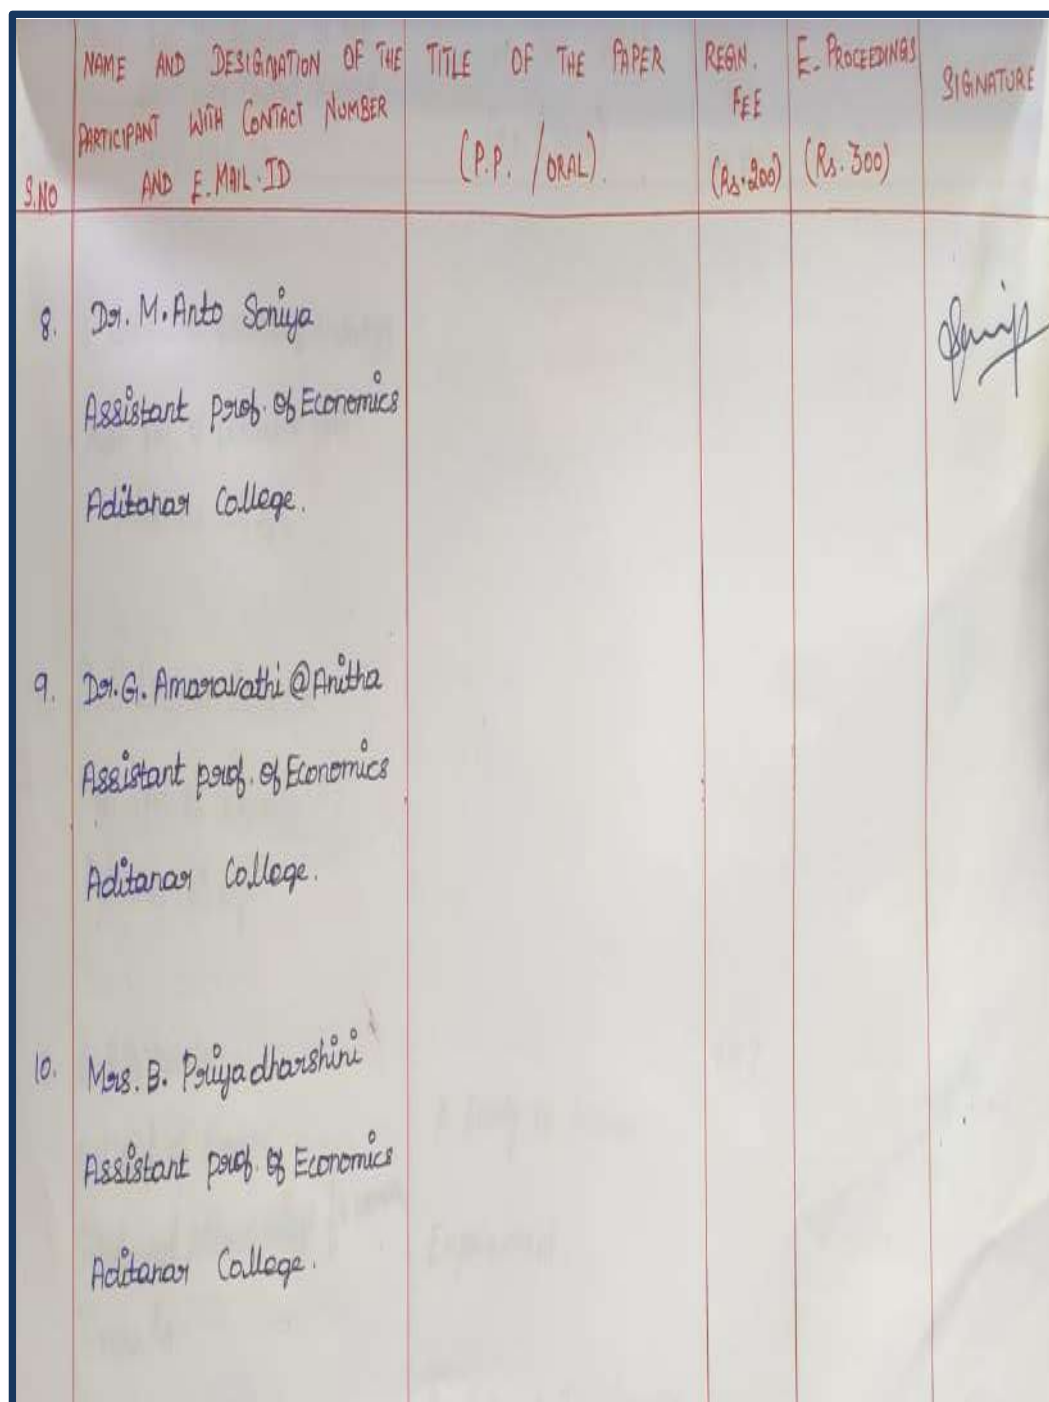 S.NO
NAME AND DESIGNATION OF THE
PARTICIPANT WITH CONTACT NUMBER
AND E.MAIL.ID
TITLE OF THE PAPER
(P.P. / ORAL).
REGN.
FEE
(Rs.200)
E. PROCEEDINGS
(Rs.300)
SIGNATURE
8.
Dr. M. Anto Soniya
Assistant prof. of Economics
Aditanar College.
9.
Dr. G. Amaravathi @ Anitha
Assistant prof. of Economics
Aditanar College.
10.
Mrs. B. Priyadharshini
Assistant prof. of Economics
Aditanar College.